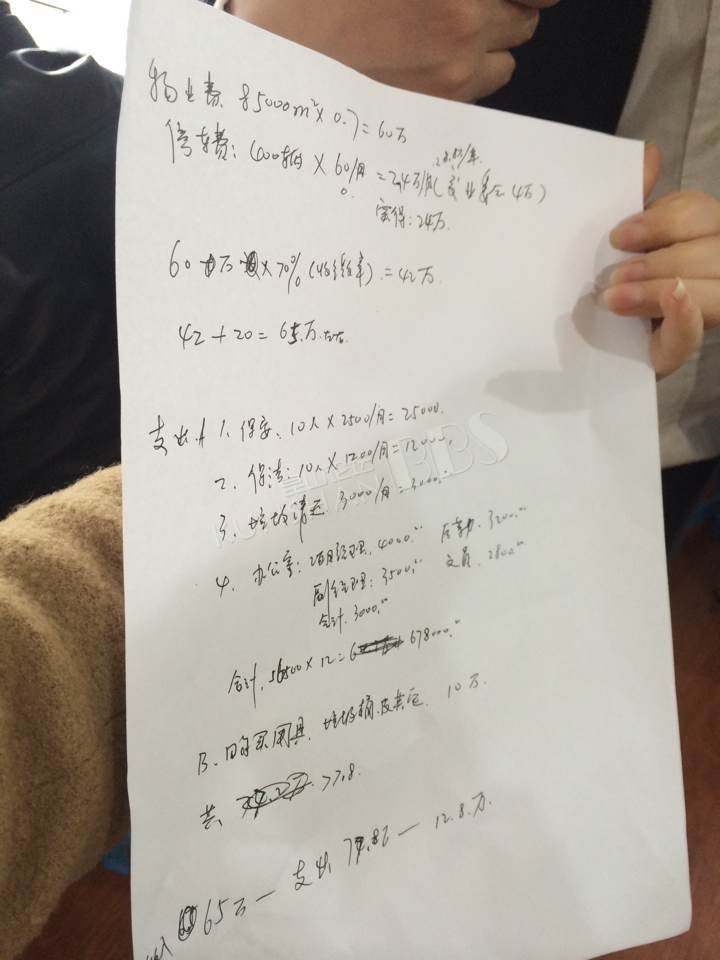 物业费: 85000m²×0.7=60万
28.8万/年
停车费: 400辆 × 60/月 = 2.4万/月(业委会4万)
实得:24万.
60万 ×70%(收缴率).=42万.
42+20=65万.左右
支出:A 1、保安、10人×2500/月=25000.
2、保洁:10人×1200/月=12000,
3、垃圾清运 3000/月=3000.
4、办公室:项目经理.4000. 后勤.3200.
副经理:3500. 文员.2800
会计.3000.
合计.56500×12=678000.
B、购买用具、垃圾桶及其它. 10万.
共 77.8
65万 — 支出 77.8万 — 12.8.万.
昆山论坛
KUNSHAN BBS